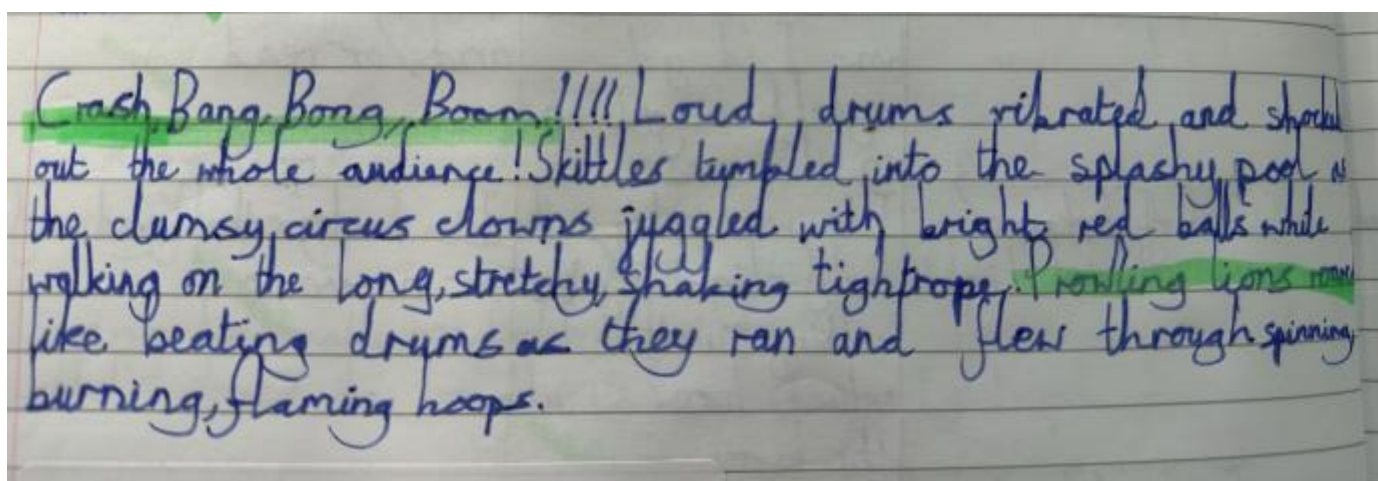 Crash, Bang, Bong, Boom!!!! Loud, drums vibrated and shocked
out the whole audience! Skittles tumbled into the splashy pool as
the clumsy, circus clowns juggled with bright, red balls while
walking on the long, stretchy, shaking tightrope. Prowling lions
like beating drums as they ran and flew through spinning,
burning, flaming hoops.